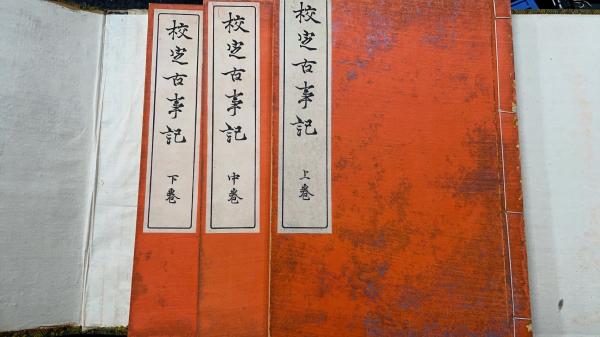 校定古事記 上巻
校定古事記 中巻
校定古事記 下巻